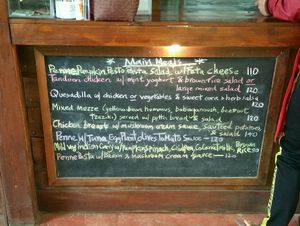 * Main Meals *
Penne Pumpkin Pesto Pasta Salad w/ Feta cheese 110
Tandoori chicken w/ mint yoghurt & brown rice salad or
large mixed salad 120
Quesadilla w/ chicken or vegetables & sweet corn + herb salsa
120
Mixed Mezze (
babaganoush, beetroot
served w/ pitta bread & salad 120
Chicken breast w/ mushroom cream sauce, sauteed potatoes
& salad 140
Penne w/ Tuna, Eggplant olives tomato sauce - 120
Mild veg Indian Curry w/ Pumpkin, Spinach, Chickpea, Coconut milk, Brown
Rice 110
Penne Pasta w/ Bacon & Mushroom cream sauce - 120